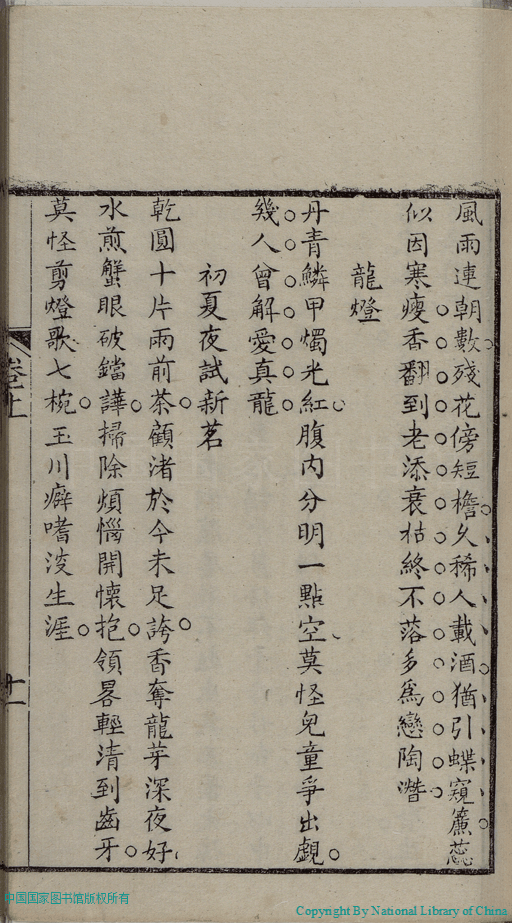 風雨連朝數殘花傍短檐久稀人載酒猶引蝶窺簾蕊
似因寒瘦香翻到老添衰枯終不落多爲戀陶潛
龍燈
丹青鱗甲燭光紅腹內分明一點空莫怪兒童爭出覷
幾人曾解愛真龍
初夏夜試新茗
乾圓十片雨前茶顧渚於今未足誇香奪龍芽深夜好
水煎蟹眼破鐺譁掃除煩惱開懷抱領畧輕清到齒牙
莫怪剪燈歌七椀玉川癖嗜沒生涯
卷上
十一
中国国家图书馆版权所有
Copyright By National Library of China